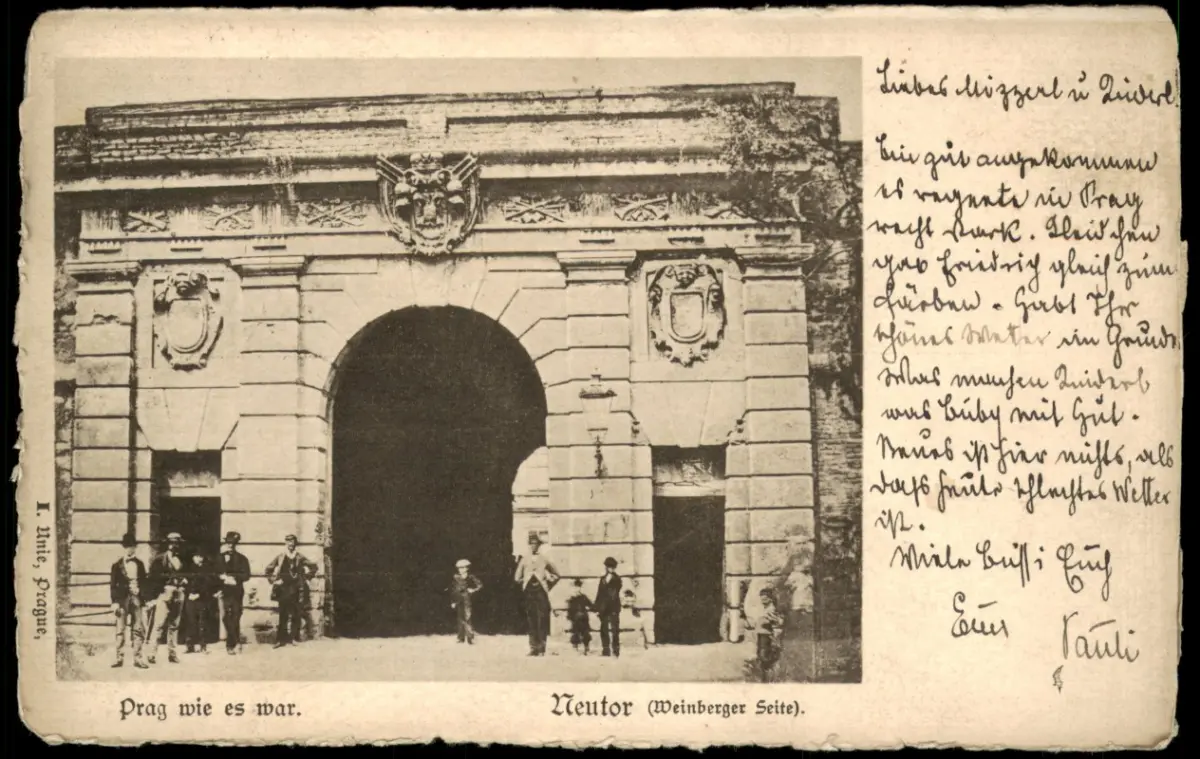 Liebes Mizzerl u Zuderl!
bin gut angekommen
es regnete in Prag
recht stark. Kleidchen
gab Friedrich gleich zum
Färben. Habt Ihr
schönes Wetter im Grunde
Was machen Zuderl
was Buby mit Hut.
Neues ist hier nichts, als
dass heute schlechtes Wetter
ist.
Viele Bussi Euch
Euer
Pauli
I. Unie, Prague,
Prag wie es war.
Neutor (Weinberger Seite).